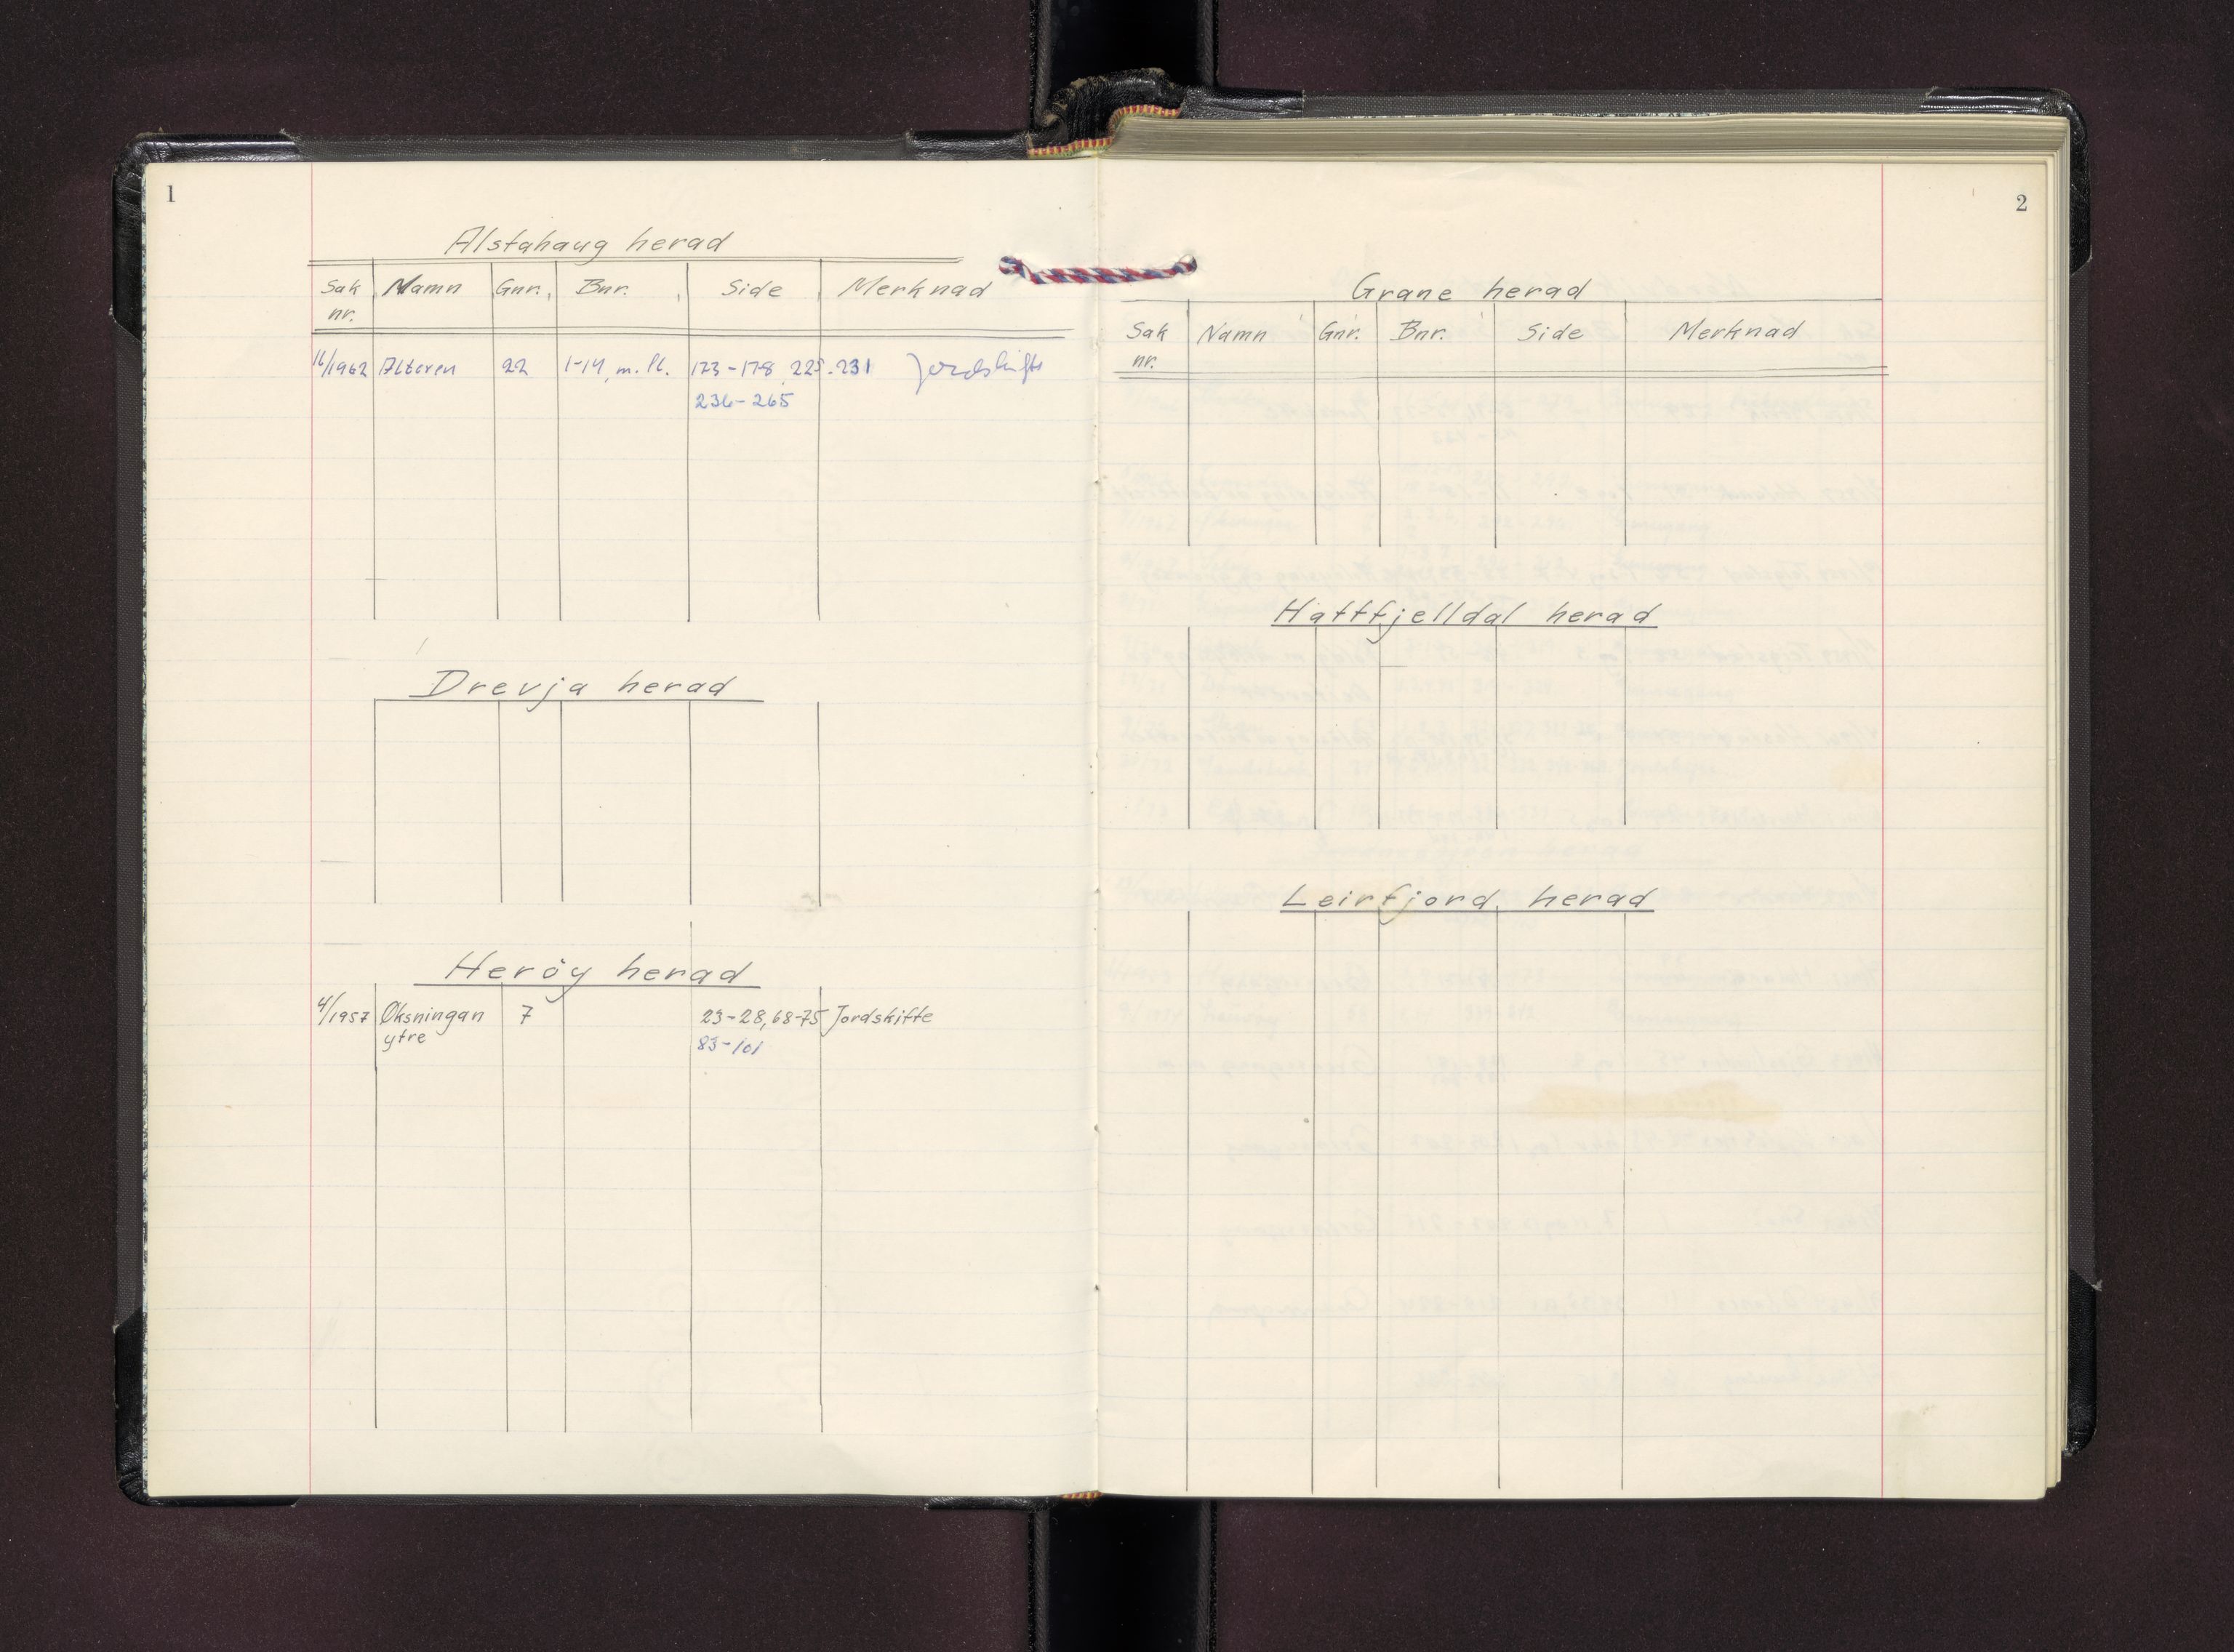 1
Alstahaug herad
Sak nr. Namn Gnr. Bnr. Side Merknad
16/1962 Alteren 22 1-14, m. fl. 173-178, 225-231 Jordskifte
236-265
Drevja herad
Herøy herad
4/1957 Øksningan 7 23-28, 68-75 Jordskifte
ytre 83-101
2
Grane herad
Sak nr. Namn Gnr. Bnr. Side Merknad
Hattfjelldal herad
Leirfjord herad